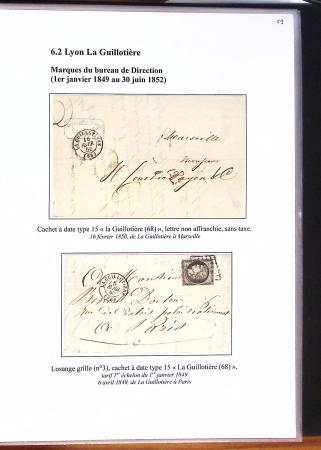 6.2 Lyon La Guillotière
Marques du bureau de Direction
(1er janvier 1849 au 30 juin 1852)
Marseille
Monsieur
Cachet à date type 15 « la Guillotière (68) », lettre non affranchie, sans taxe.
16 février 1850, de La Guillotière à Marseille
A Monsieur
à Paris
Losange grille (n°3), cachet à date type 15 « La Guillotière (68) »,
tarif 1er échelon du 1er janvier 1849
6 avril 1849, de La Guillotière à Paris